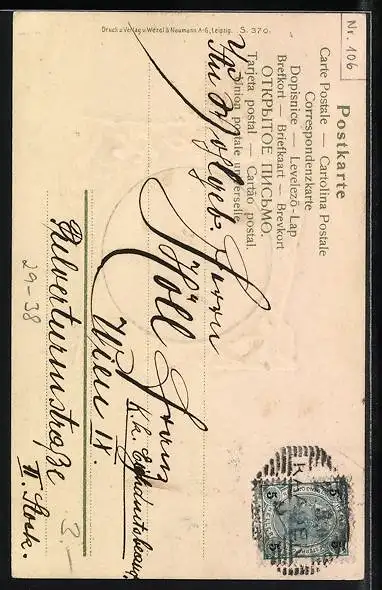 Nr. 106
Postkarte
Carte Postale — Cartolina Postale
Correspondenzkarte
Dopisnice — Levelező-Lap
Brefkort — Briefkaart — Brevkort
ОТКРЫТОЕ ПИСЬМО.
Tarjeta postal — Cartão postal.
Union postale universelle.
Druck u. Verlag v. Wezel & Naumann A-G, Leipzig. S. 370.
Herrn
Höll Franz
k. k.
Wien IX.
Pulverturmstraße
II. Stock.
29-38
3 —
5 5
5 5